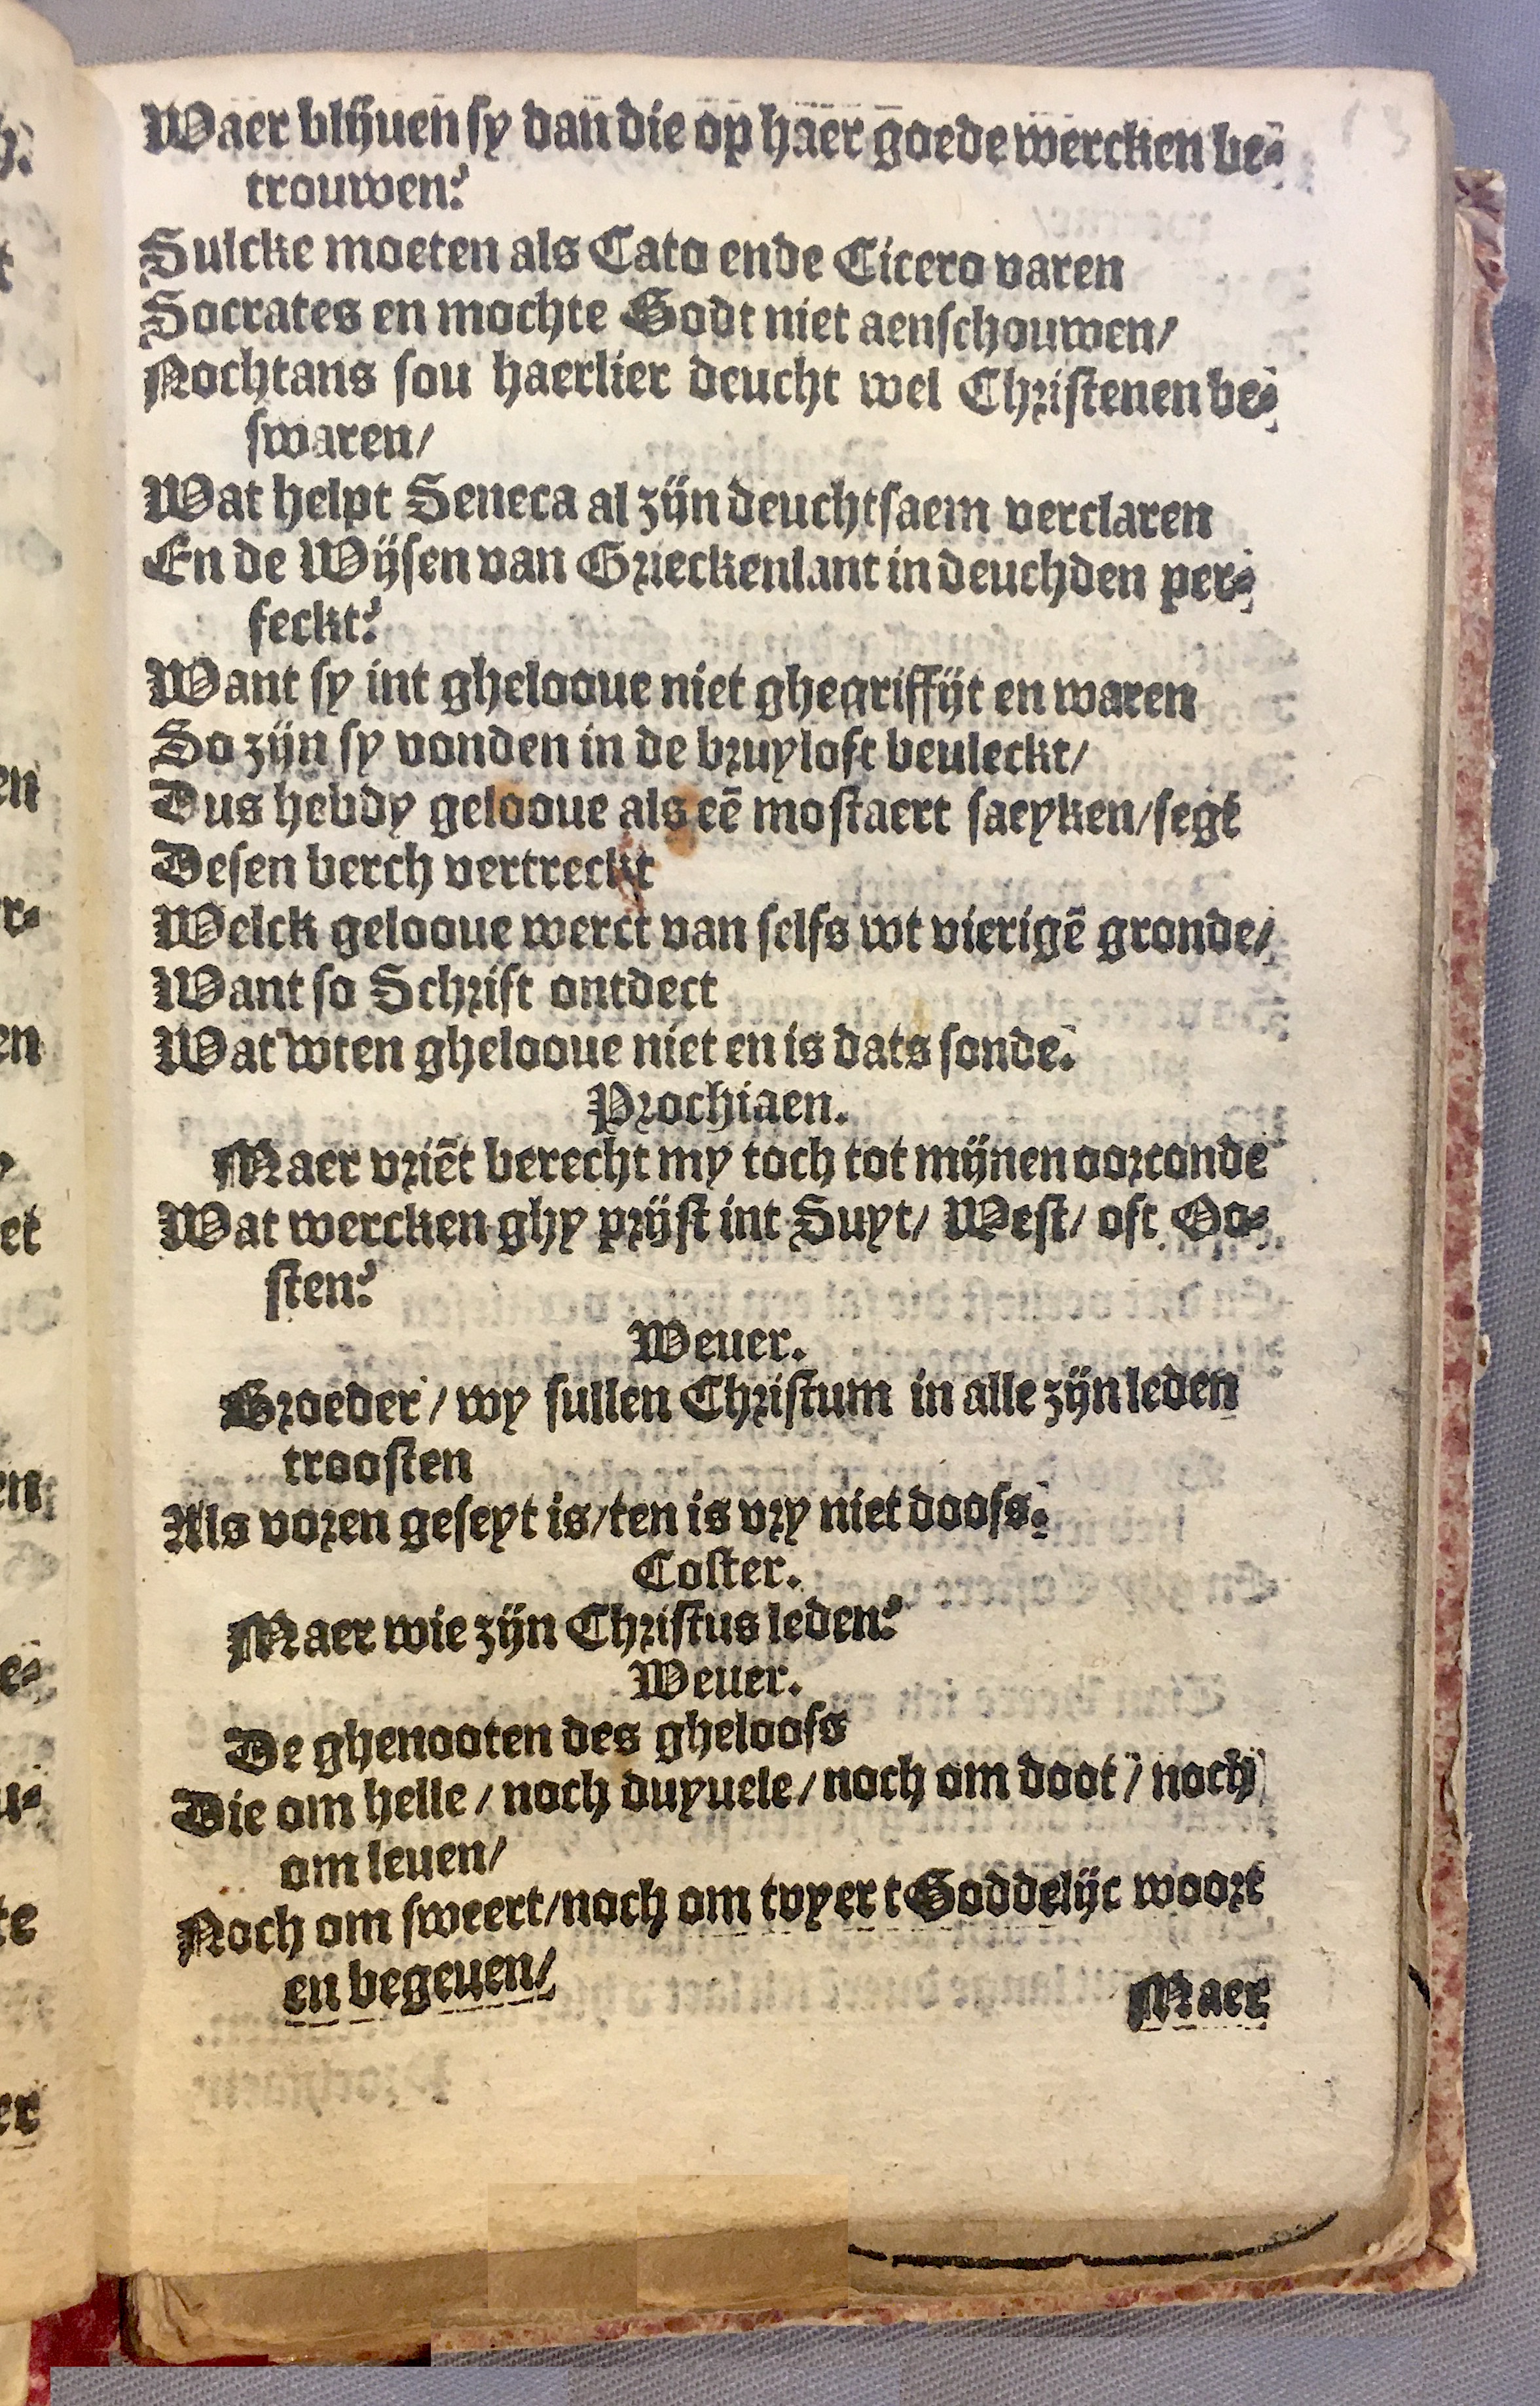 Waer blijuen sy dan die op haer goede wercken be-
trouwen?
Sulcke moeten als Cato ende Cicero varen
Socrates en mochte Godt niet aenschouwen/
Nochtans sou haerlier deucht wel Christenen be-
swaren/
Wat helpt Seneca al zijn deuchtsaem verclaren
En de Wijsen van Grieckenlant in deuchden per-
feckt?
Want sy int ghelooue niet ghegriffijt en waren
So zijn sy vonden in de bruyloft beuleckt/
Dus hebdy gelooue als eē mostaert saeyken/segt
Desen berch vertreckt
Welck gelooue werct van selfs wt vierigē gronde/
Want so Schrift ontdect
Wat wten ghelooue niet en is dats sonde.
Prochiaen.
Maer vriēt berecht my toch tot mijnen oorconde
Wat wercken ghy prijst int Suyt/ West/ oft Oo-
sten?
Weuer.
Broeder/ wy sullen Christum in alle zijn leden
troosten
Als voren geseyt is/ten is vry niet doofs.
Coster.
Maer wie zijn Christus leden?
Weuer.
De ghenooten des gheloofs
Die om helle/ noch duyuele/ noch om doot/ noch
om leuen/
Noch om sweert/noch om tvyer t Goddelijc woort
en begeuen/
Maer